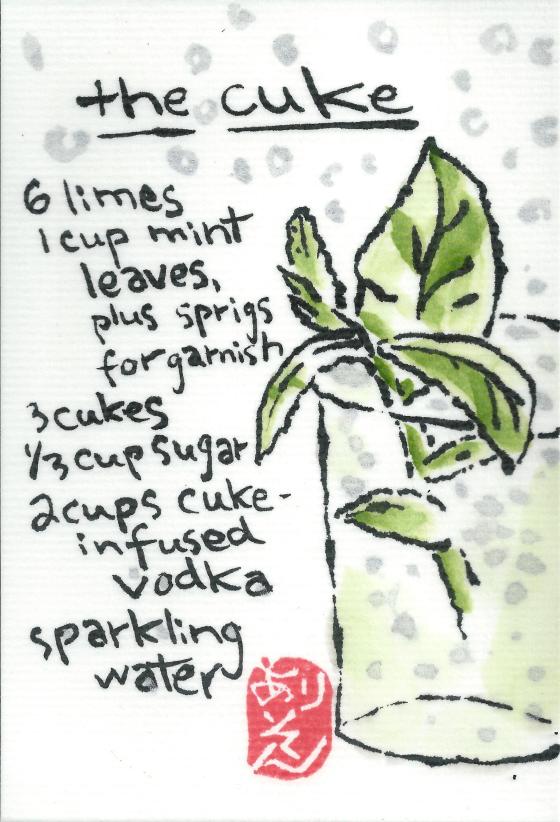 the cuke
6 limes
1 cup mint
leaves,
plus sprigs
for garnish
3 cukes
1/3 cup sugar
2 cups cuke-
infused
vodka
sparkling
water
ありそん